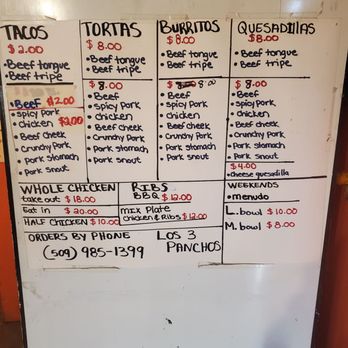 TACOS
$2.00
•Beef tongue
•Beef tripe
•Beef $2.00
•Spicy Pork
•Chicken $2.00
•Beef Cheek
•Crunchy Pork
•Pork Stomach
•Pork Snout
TORTAS
$8.00
•Beef tongue
•Beef tripe
$8.00
•Beef
•Spicy Pork
•Chicken
•Beef Cheek
•Crunchy Pork
•Pork Stomach
•Pork Snout
BURRITOS
$8.00
•Beef tongue
•Beef tripe
$ 8.00
•Beef
•Spicy Pork
•Chicken
•Beef Cheek
•Crunchy Pork
•Pork Stomach
•Pork Snout
QUESADILLAS
$8.00
•Beef tongue
•Beef tripe
$ 8.00
•Beef
•Spicy Pork
•Chicken
•Beef Cheek
•Crunchy Pork
•Pork Stomach
•Pork Snout
$4.00
•Cheese quesadilla
WHOLE CHICKEN
take out $18.00
Eat in $20.00
HALF CHICKEN $10.00
RIBS
BBQ $12.00
Mix Plate
Chicken & Ribs $12.00
WEEKENDS
•menudo
L. bowl $10.00
M. bowl $8.00
ORDERS BY PHONE
(509) 985-1399
LOS 3
PANCHOS